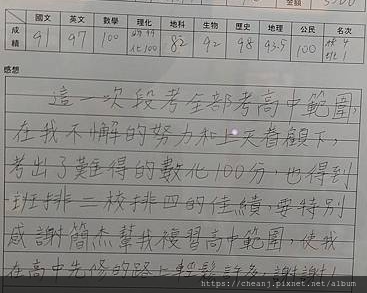 金額
國文 英文 數學 理化 地科 生物 歷史 地理 公民 名次
成績 91 97 100 化100 82 92 98 93.5 100 校4
班2
感想
這一次段考全部考高中範圍,
在我不懈的努力和上天眷顧下,
考出了難得的數化100分,也得到
班排二校排四的佳績,要特別
感謝簡杰幫我複習高中範圍,使我
在高中先修的路上輕鬆許多,謝謝!
https://cheanj.pixnet.net/album